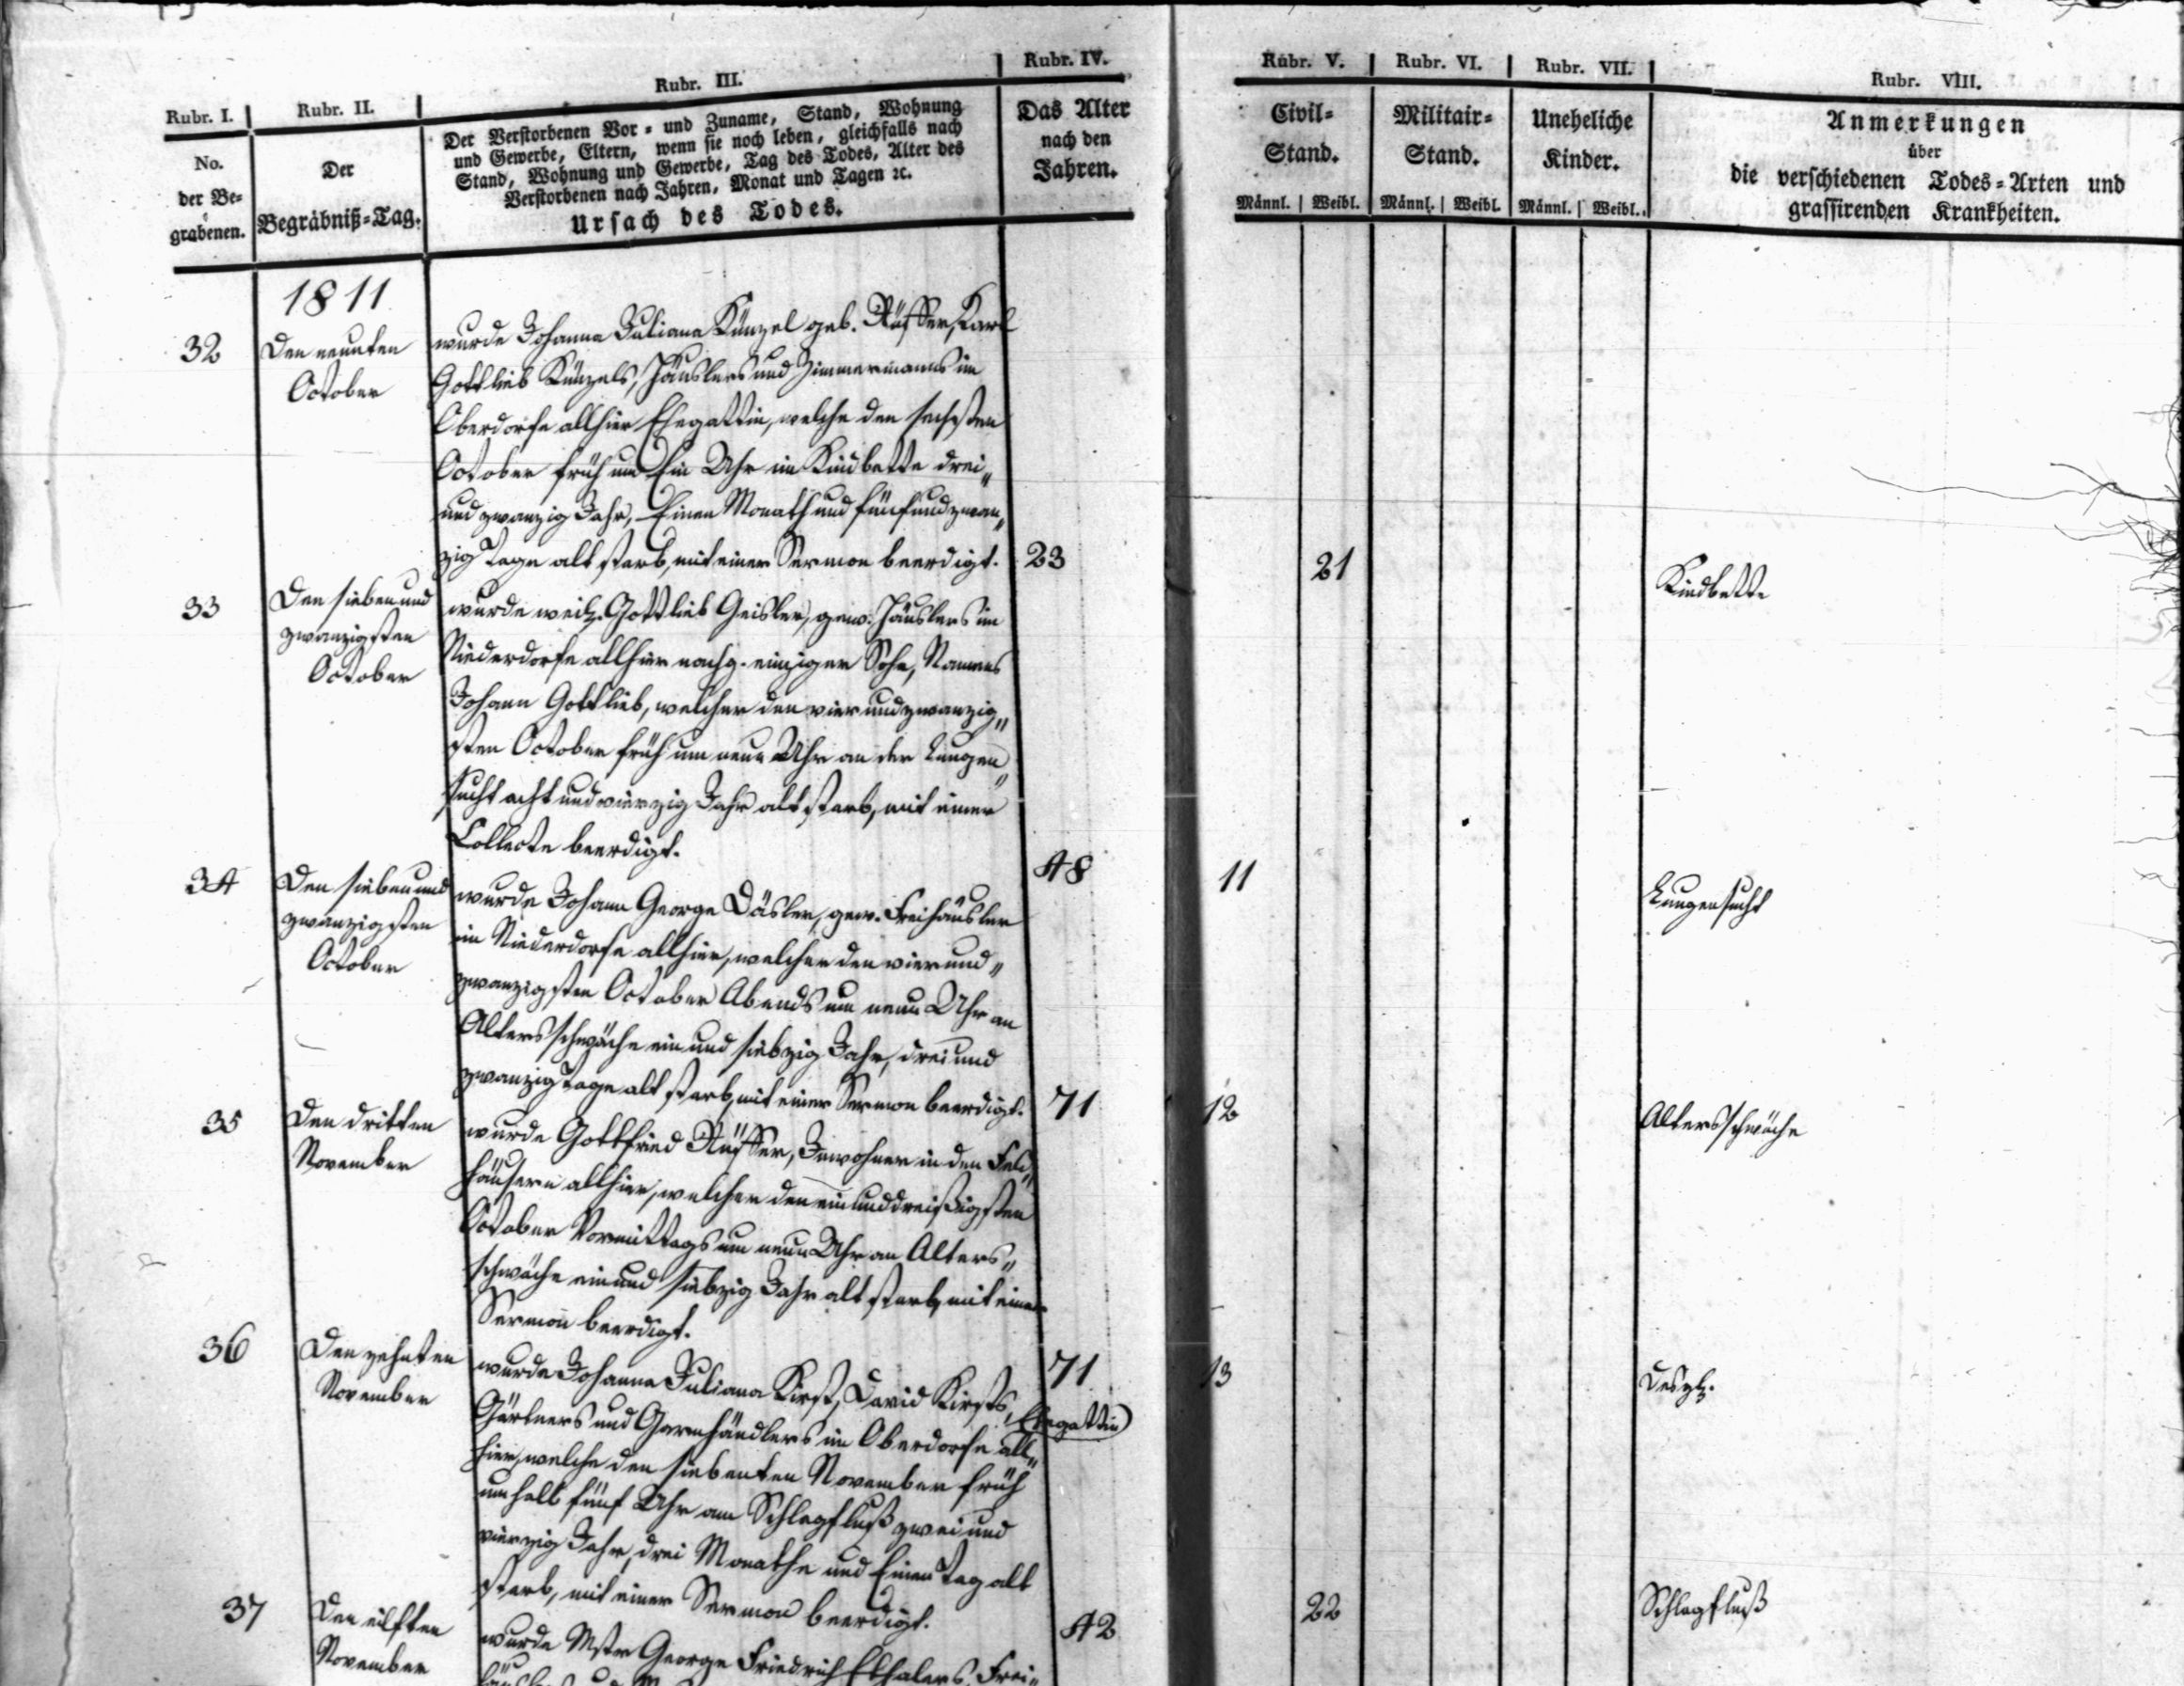 Rubr. I.
No.
der Be-
grabenen.
Rubr. II.
Der
Begräbniß-Tag.
Rubr. III.
Der Verstorbenen Vor- und Zuname, Stand, Wohnung
und Gewerbe, Eltern, wenn sie noch leben, gleichfalls nach
Stand, Wohnung und Gewerbe, Tag des Todes, Alter des
Verstorbenen nach Jahren, Monat und Tagen ꝛc.
Ursach des Todes.
Rubr. IV.
Das Alter
nach den
Jahren.
Rubr. V.
Civil-
Stand.
Männl. Weibl.
Rubr. VI.
Militair-
Stand.
Männl. Weibl.
Rubr. VII.
Uneheliche
Kinder.
Männl. Weibl.
Rubr. VIII.
Anmerkungen
über
die verschiedenen Todes-Arten und
grassirenden Krankheiten.
1811
32
Den neunten
October
wurde Johanna Juliana Künzel geb. Rüffer, Karl
Gottlieb Künzels, Häuslers und Zimmermanns im
Oberdorfe allhier Ehegattin, welche den sechsten
October früh um Ein Uhr im Kindbette drei„
und zwanzig Jahr, Einen Monath und fünf und zwan„
zig Tage alt starb, mit einer Sermon beerdigt.
23
21
Kindbette
33
Den sieben und
zwanzigsten
October
wurde weil. Gottlieb Geisler, gew. Häuslers im
Niederdorfe allhier nachg. einziger Sohn, Namens
Johann Gottlieb, welcher den vier und zwanzig„
sten October früh um neun Uhr an der Lungen„
sucht acht und vierzig Jahr alt starb, mit einer
Collecte beerdigt.
48
11
Lungensucht
34
Den sieben und
zwanzigsten
October
wurde Johann George Däsler, gew. Freihäusler
im Niederdorfe allhier, welcher den vier und„
zwanzigsten October Abends um neun Uhr an
Altersschwäche ein und siebzig Jahr, drei und
zwanzig Tage alt starb, mit einer Sermon beerdigt.
71
12
Altersschwäche
35
Den dritten
November
wurde Gottfried Rüffer, Inwohner in den Feld„
häusern allhier, welcher den ein und dreißigsten
October Vormittags um neun Uhr an Alters„
schwäche ein und siebzig Jahr alt starb, mit einer
Sermon beerdigt.
71
13
Desgl.
36
Den zehnten
November
wurde Johanna Juliana Kirst, David Kirsts,
Gärtners und Garnhändlers im Oberdorfe all„ Ehegattin
hier, welche den siebenten November früh
um halb fünf Uhr am Schlagfluß zwei und
vierzig Jahr, drei Monathe und Einen Tag alt
starb, mit einer Sermon beerdigt.
42
22
Schlagfluß
37
Den eilften
November
wurde Mstr George Friedrich Frei„